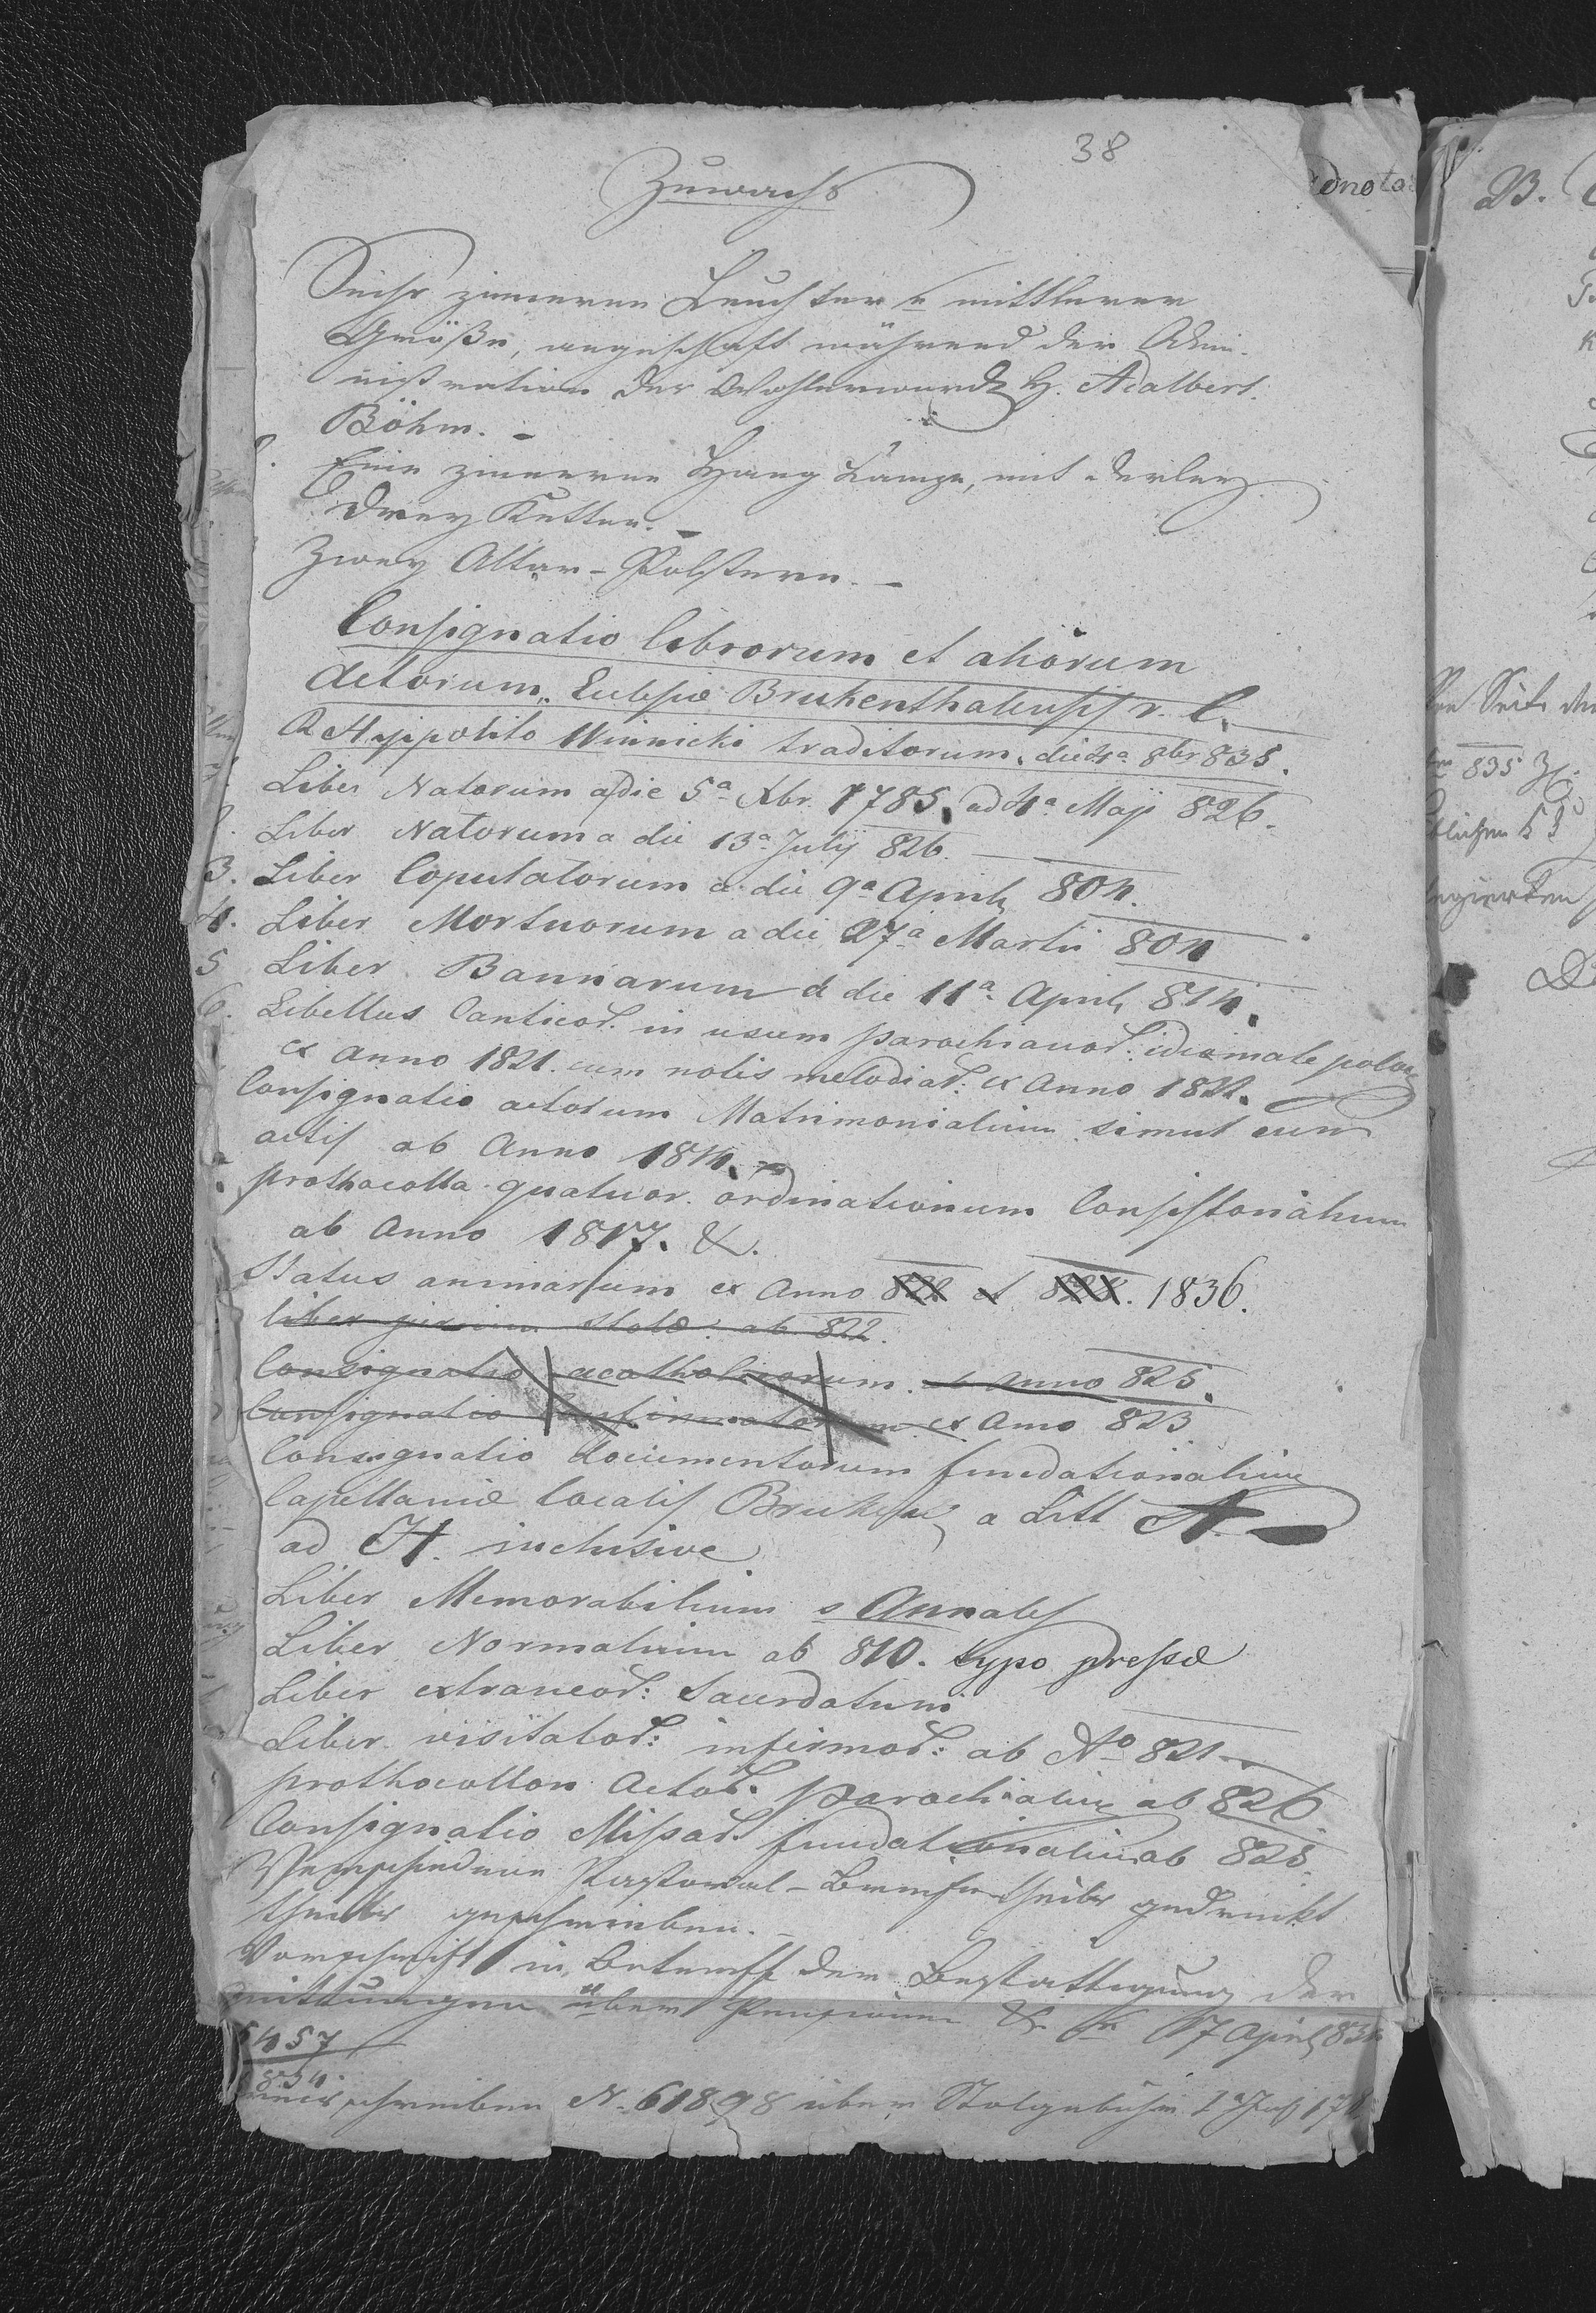 38
Zuwachs
Sechs zinnerne Leuchter mittlerer
Größe, angeschaft während der Admi-
nistration des Wohlerwürd H. Adalbert
Böhm. -
Eine zinnerne Häng Lampe, mit derley
drey Ketten. -
Zwey Altar-Polstern. -
Consignatio librorum et aliorum
Actorum Ecclesiæ Brukenthalensis r. l.
a Hyppolito Winnicki traditorum. die 4a 8br 835.
Liber Natorum a die 5a Xbr. 1785. ad 4a Maji 826.
2. Liber Natorum a die 13a July 826.
3. Liber Copulatorum a die 9a April 804.
4. Liber Mortuorum a die 27a Martii 804
5 Liber Bannarum a die 11a April 814.
6. Libellus Canticor. in usum parochianor: idiomate polon
ex Anno 1821. cum notis melodiar: ex Anno 1822.
Consignatio actorum Matrimonialium simul cum
actis ab Anno 1814.
prothocolla quatuor ordinationum Consistorialium
ab Anno 1817. &.
Status animarum ex Anno 822 et 828. 1836.
liber jurium stolæ ab 822.
Consignatio acatholicorum ex Anno 825.
Consignatio confirmatorum ex Anno 823
Consignatio documentorum fundationalium
Capellaniæ localis Bruken a Litt A
ad H. inclusive
Liber Memorabilium s Annales
Liber Normalium ab 810. typo pressæ
Liber extraneor: Sacerdotum
Liber visitator: infirmor: ab Ao 821
prothocollon Actor. parochialium ab 826
Consignatio Missar. fundationalium ab 825.
Verschiedene Pastoral- theils gedruckt
theils geschrieben. -
Vorschrift in Betreff der Bestättigung der
Quittungen über Pensionen & 17 April 83
5457
834.
schreiben N. 61898 über Stolgebühr 1